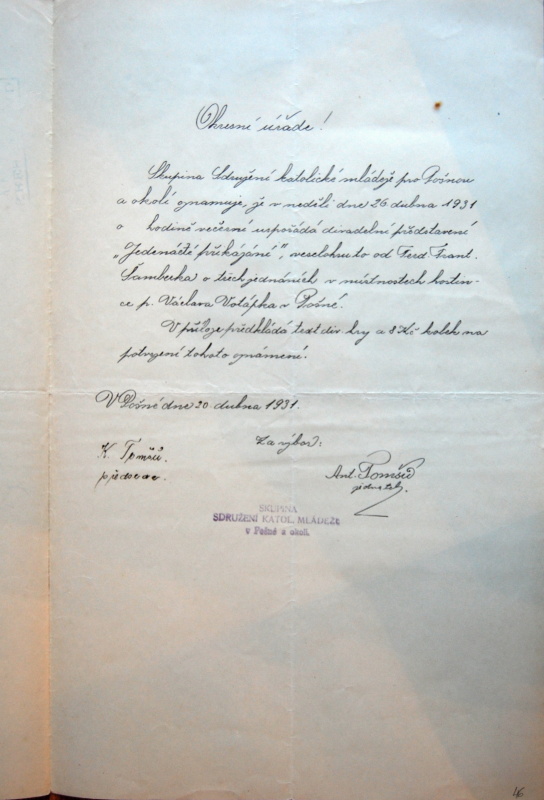 Okresní úřade!
Skupina Sdružení katolické mládeže pro Pošnou
a okolí oznamuje, že v neděli dne 26 dubna 1931
o hodině večerní uspořádá divadelní představení
„Jedenácté přikázání", veselohru to od Ferd. Frant.
Šamberka o třech jednáních v místnostech hostin-
ce p. Václava Votápka v Pošné.
V příloze předkládá text div. hry a 8 Kč kolek na
potvrzení tohoto oznámení.
V Pošné dne 20 dubna 1931.
Za výbor:
K. Tomšů.
předseda.
Ant. Tomšů
jednatel.
SKUPINA
SDRUŽENÍ KATOL. MLÁDEŽE
v Pošné a okolí.
46